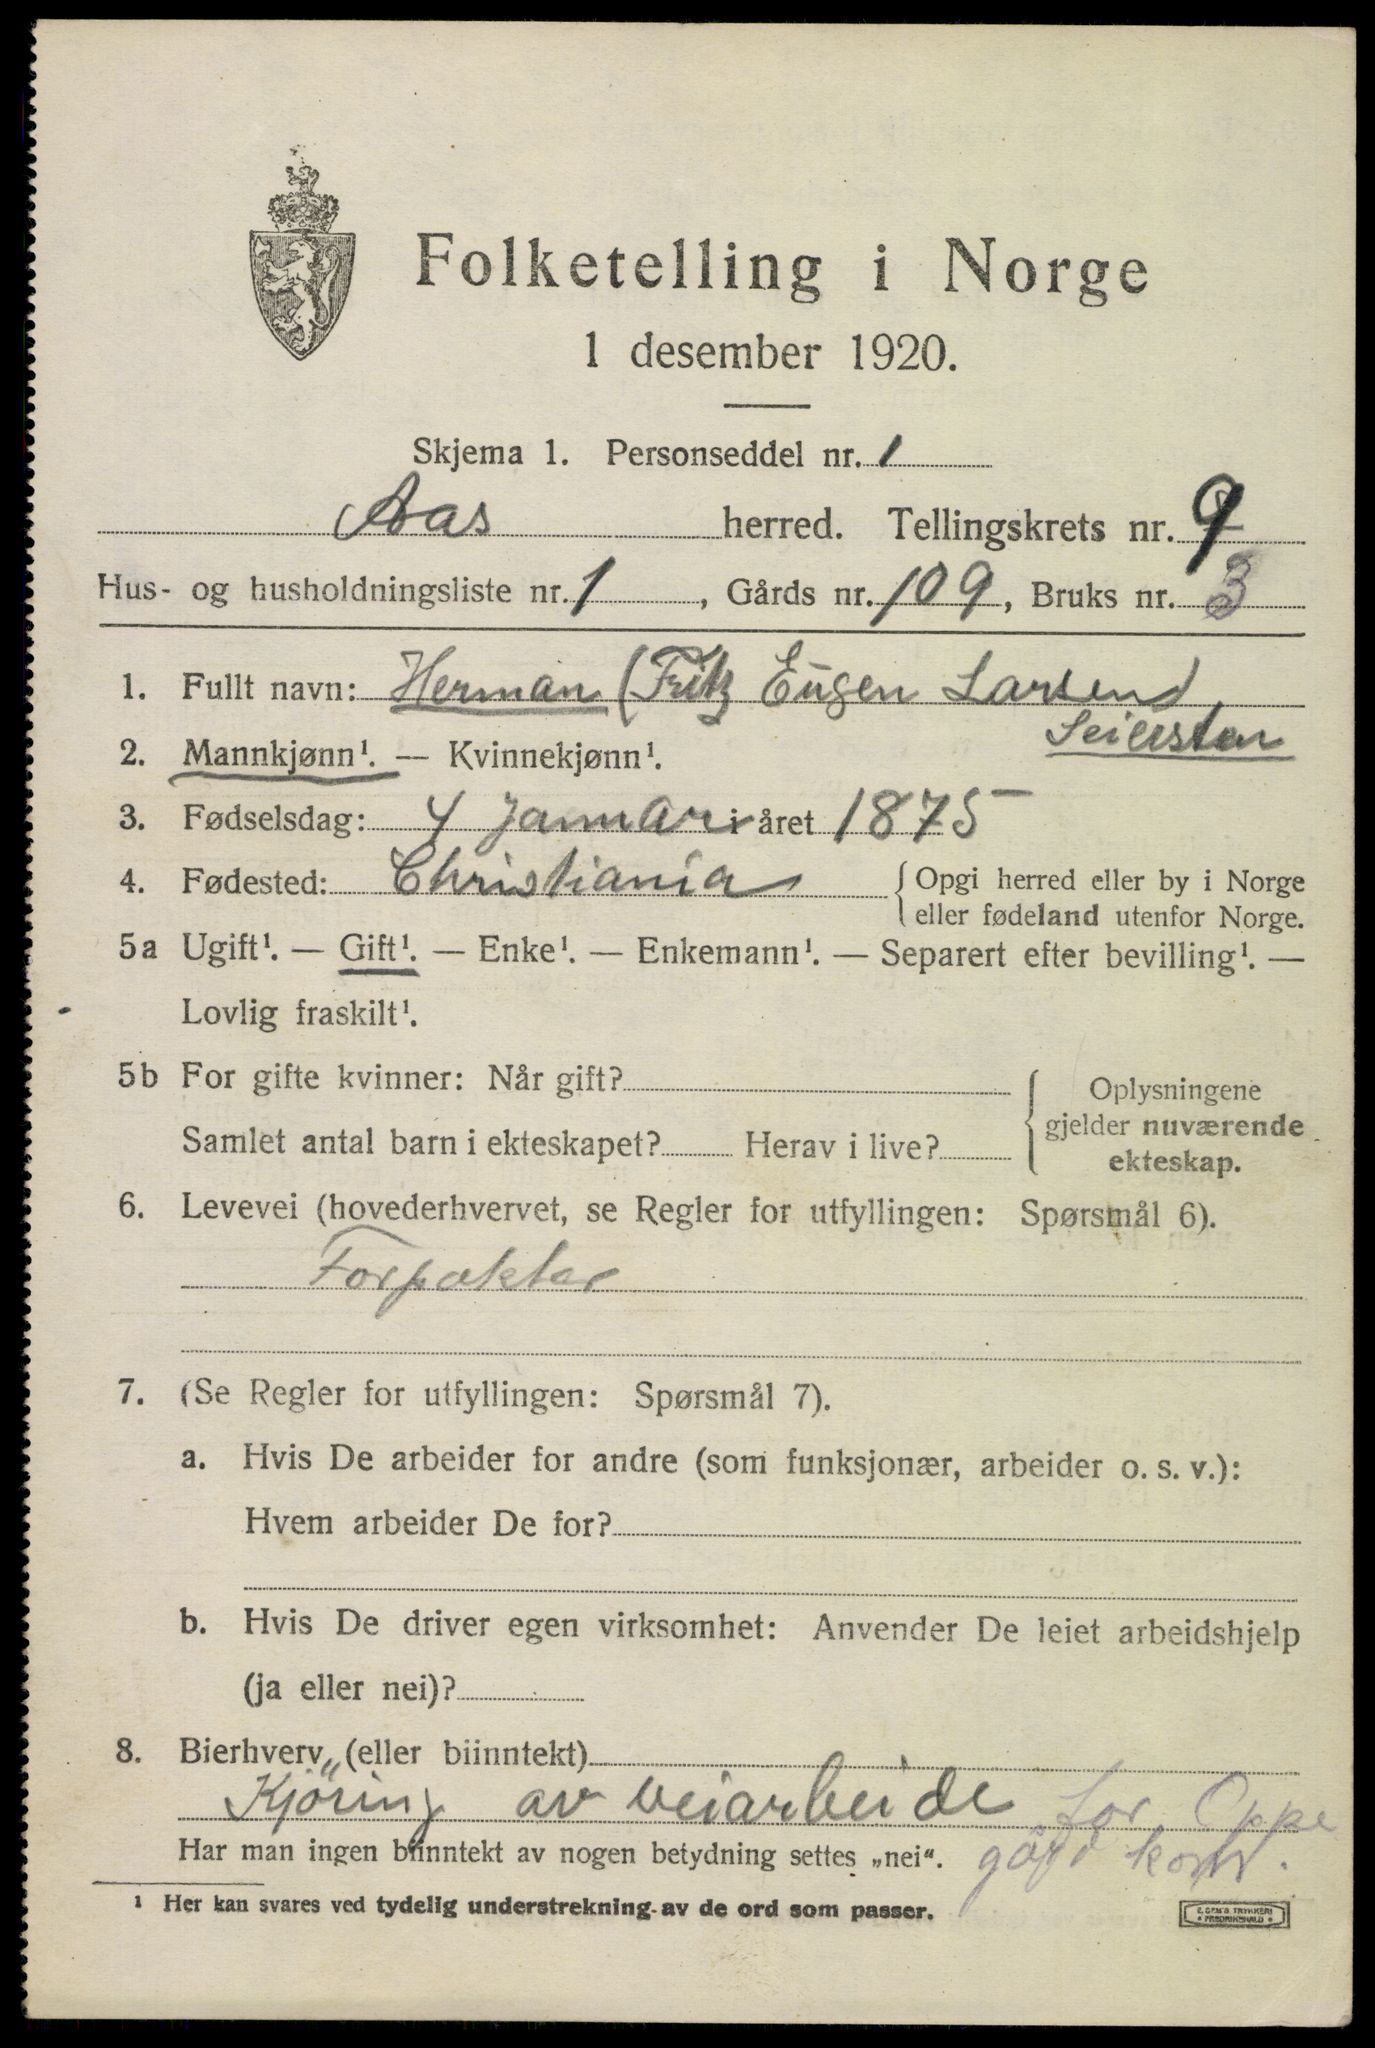 Folketelling i Norge
1 desember 1920.
Skjema 1. Personseddel nr. 1
Aas herred. Tellingskrets nr. 9
Hus- og husholdningsliste nr. 1, Gårds nr. 109, Bruks nr. 3
1. Fullt navn: Herman (Fritz Eugen Larsen)
Seiersten
2. Mannkjønn¹. — Kvinnekjønn¹.
3. Fødselsdag: 4 Januar i året 1875
4. Fødested: Christiania { Opgi herred eller by i Norge
eller fødeland utenfor Norge.
5a Ugift¹. — Gift¹. — Enke¹. — Enkemann¹. — Separert efter bevilling¹. —
Lovlig fraskilt¹.
5b For gifte kvinner: Når gift?
Samlet antal barn i ekteskapet? Herav i live?
Oplysningene
gjelder nuværende
ekteskap.
6. Levevei (hovederhvervet, se Regler for utfyllingen: Spørsmål 6).
Forpakter
7. (Se Regler for utfyllingen: Spørsmål 7).
a. Hvis De arbeider for andre (som funksjonær, arbeider o. s. v.):
Hvem arbeider De for?
b. Hvis De driver egen virksomhet: Anvender De leiet arbeidshjelp
(ja eller nei)?
8. Bierhverv (eller biinntekt)
Kjöring av veiarbeide for Oppe
gård kom.
Har man ingen biinntekt av nogen betydning settes „nei“.
¹ Her kan svares ved tydelig understrekning av de ord som passer.
E. SEM'S TRYKKERI
FREDRIKSHALD